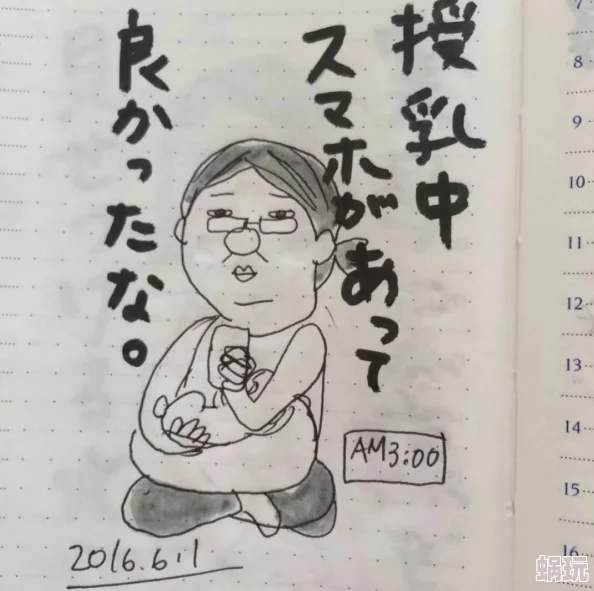 授乳中
スマホがあって
良かったな。
AM3:00
2016.6.1
7
8
9
10
11
12
13
14
15
16
蜗玩